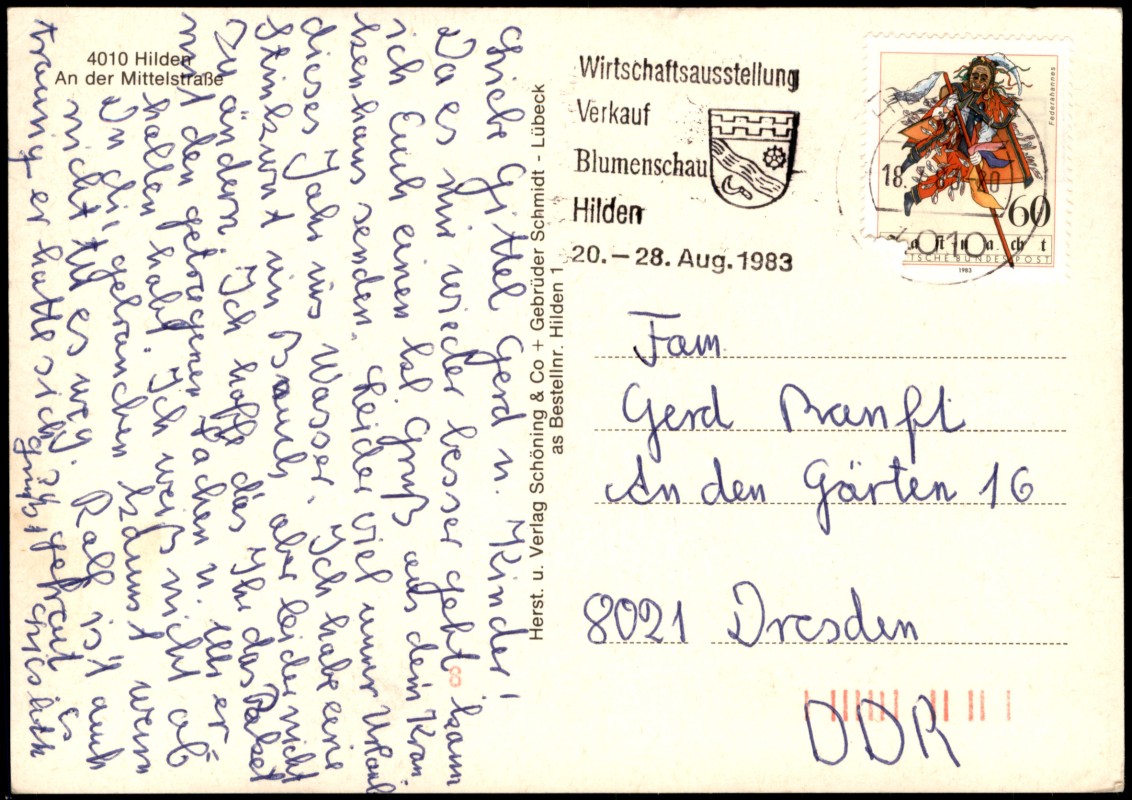 4010 Hilden
An der Mittelstraße
Liebe Gittel Gerd u. Kinder!
Da es mir wieder besser geht kann
ich Euch einen kl Gruß aus dem Kran
kenhaus senden. Leider viel unser Urlaub
dieses Jahr ins Wasser. Ich habe eine
im Bauch aber leider nicht
zu ändern. Ich hoffe das Ihr das Paket
mit den getragenen Sachen u.
halten habt. Ich weiß nicht ob
Du die gebrauchen kannst wenn
nicht tu es weg. Ralf ist auch
traurig er hatte sich so gefreut Es
grüßt
Herst. u. Verlag Schöning & Co + Gebrüder Schmidt - Lübeck
as Bestellnr. Hilden 1
8
Wirtschaftsausstellung
Verkauf
Blumenschau
Hilden
20.–28. Aug. 1983
18.
4010
Federahannes
60
DEUTSCHE BUNDESPOST
1983
Fam.
Gerd Ranft
An den Gärten 16
8021 Dresden
DDR